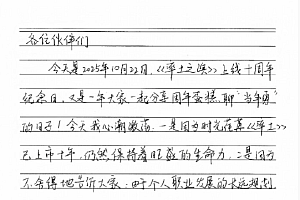 各位伙伴们
今天是2025年10月22日,《率土之滨》上线十周年
纪念日,又是一年大家一起分享周年蛋糕,聊“当年勇”
的日子!今天我心潮激荡,一是因为时光荏苒《率土》
已上市十年,仍然保持着旺盛的生命力,二是因为
不舍得地告诉大家:由于个人职业发展的长远规划